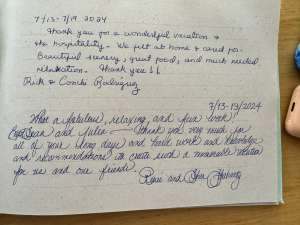 7/13-7/19 2024
Thank you for a wonderful vacation &
the hospitality. We felt at home & cared for.
Beautiful scenery, great food, and much needed
relaxation. Thank you!!
Rick & Rodriguez
7/13-19/2024
What a fabulous, relaxing, and fun week!
and Julia Thank you very much for
all of your long days and hard work and knowledge
and recommendations to create such a memorable vacation
for us and our friends.
and